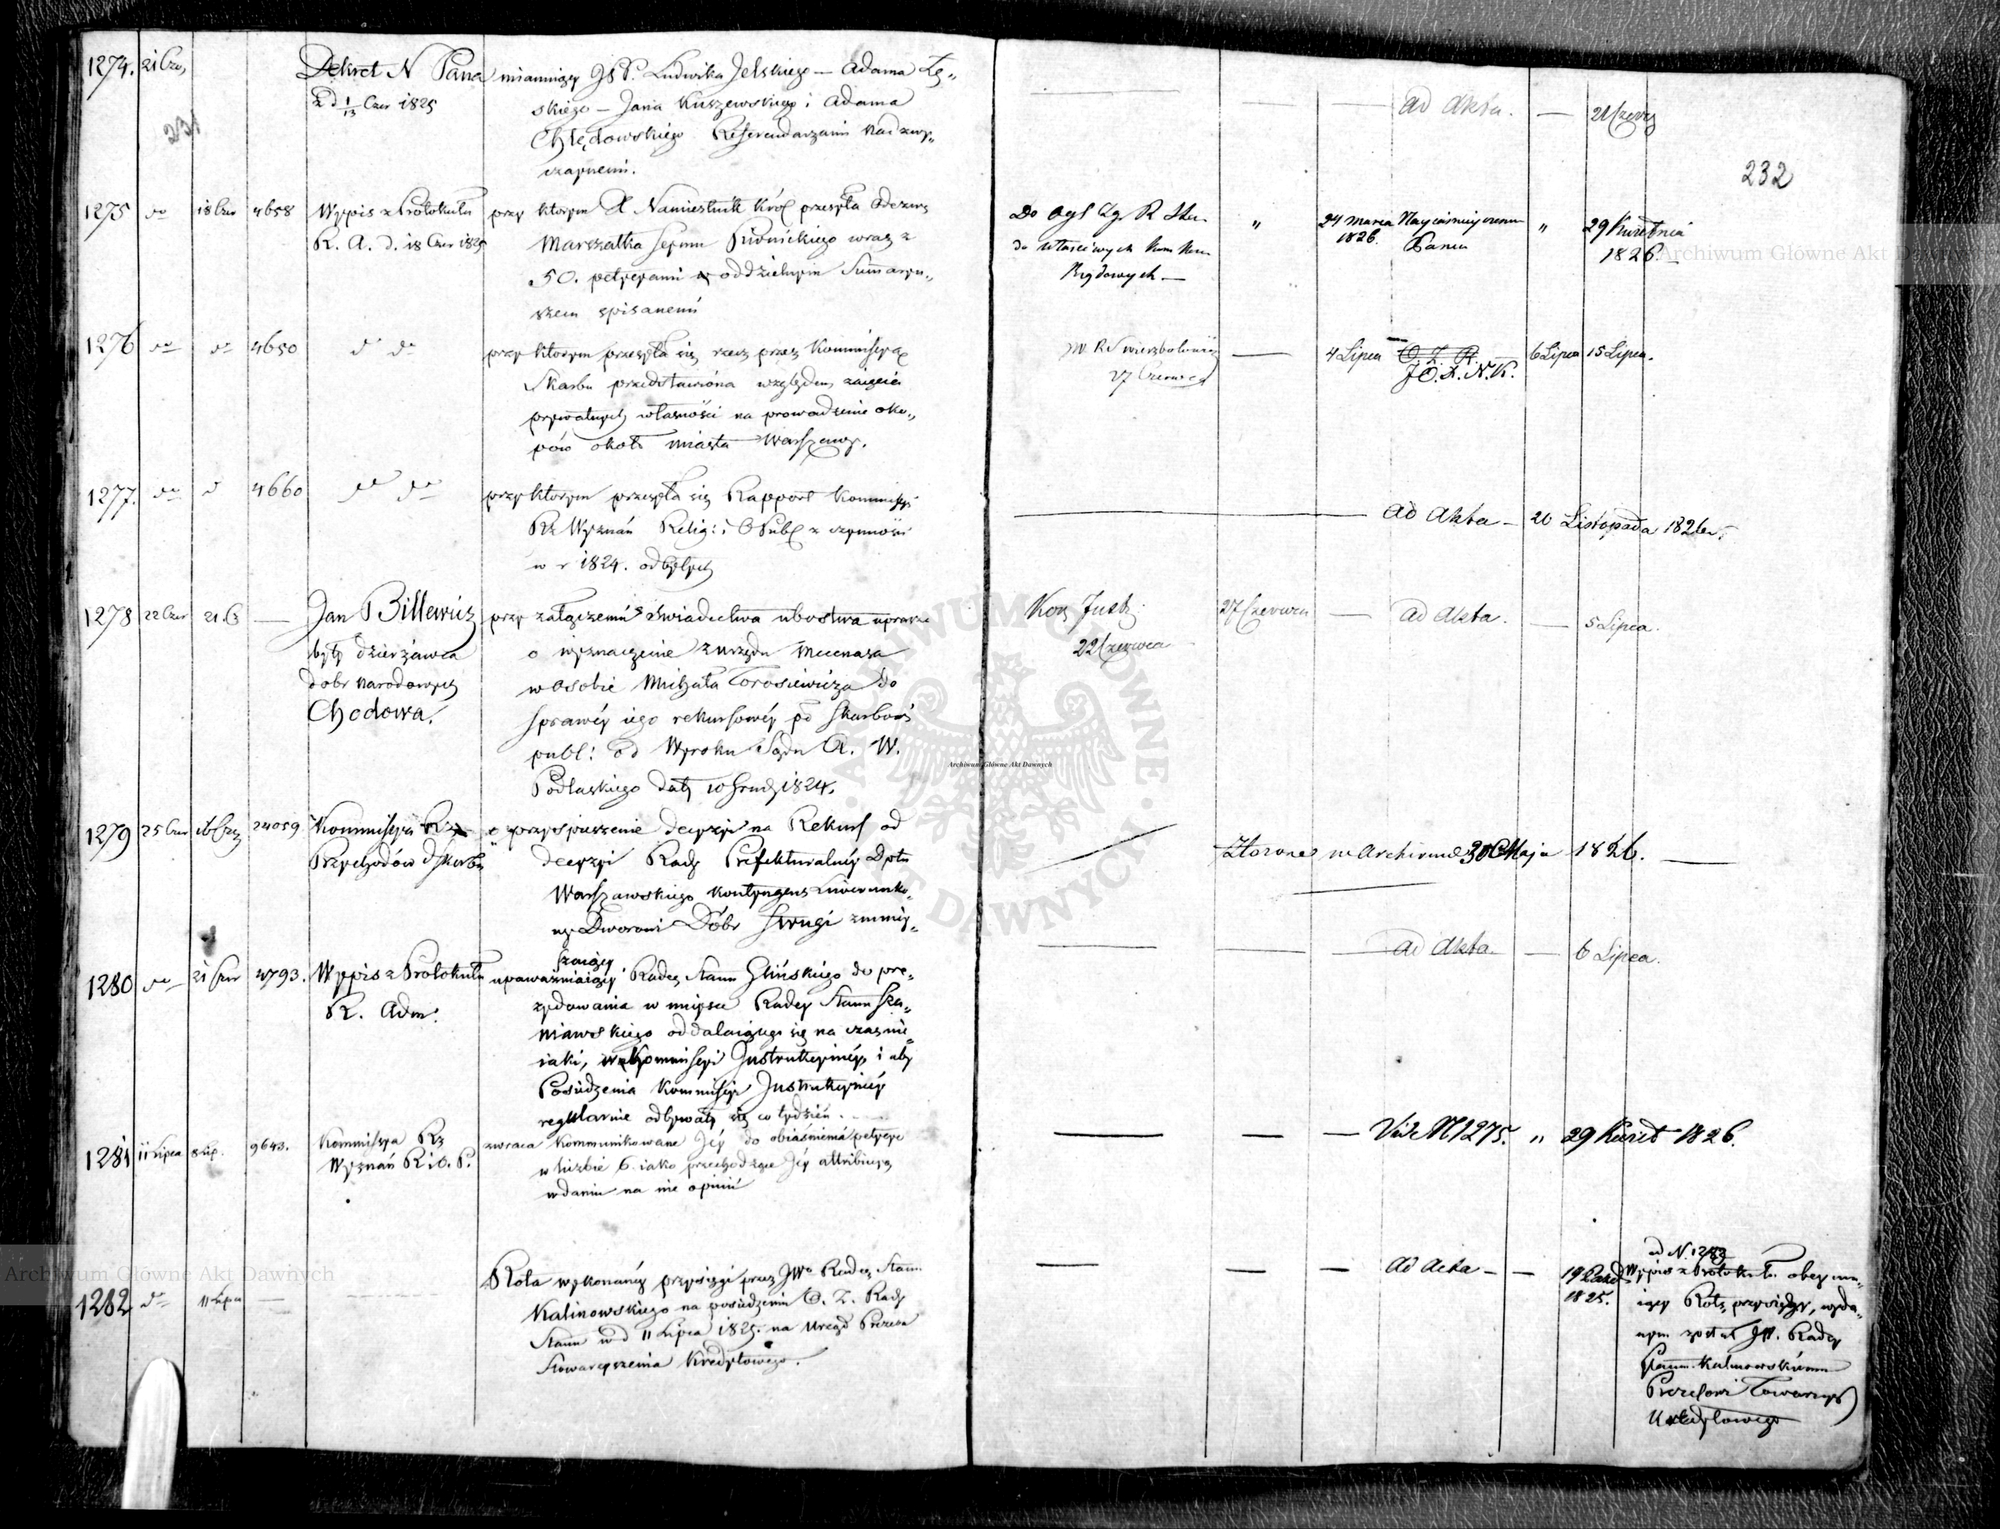 232
1274. 21 Cze,
Dekret N Pana
z d 1/13 Czer 1825
mianuiący JP. Ludwika Jelskiego — Adama Łę„
skiego — Jana Kuszewskiego i Adama
Chłędowskiego Referendarzami Nadzwy„
czaynemi.
Ad Akta. — 21 Czerw
1275 do 18 Czer 4658
Wypis z Protokułu
R. A. d. 18 Czer 1825
przy ktorym X Namiestnik Król przesyła Odezwę
Marszałka Seymu Piwnickiego wraz z
50. petycyami oddzielnym Summaryu„
szem spisanemi
Do
do właściwych Kom
Rządowych —
" 24 Marca 1826. Nayiaśnieyszemu
Panu
" 29 Kwietnia
1826. —
1276 do do 4650 do do
przy ktorym przesyła się rzecz przez Kommissyą
Skarbu przedstawiona względem zaięcia
prywatnych własności na prowadzenie oko„
pów około miasta Warszawy.
27 Czerwca
— 4 Lipca
J.O.X.N.K.
6 Lipca 15 Lipca.
1277. do d 4660 do do
przy ktorym przesyła się Rapport Kommissyi
Rz Wyznań Relig: i O Publ z czynności
w r 1824. odbytych
Ad Akta — 20 Listopada 1826 r.
1278 22 Czer 21. —
Jan Billewicz
były dzierżawca
dobr Narodowych
Chodowa.
przy załączeniu Świadectwa ubostwa uprasza
o wyznaczenie z urzędu Mecenasa
w Osobie Michała Torosiewicza do
sprawy iego rekursowéy
publ: od Wyroku Sądu A. W.
Podlaskiego
1824.
Kom Just.
22 Czerwca
27 Czerwca — Ad Akta. — 5 Lipca.
1279 25 Czer 24059
Kommissya Rz
Przychodów i Skarbu
o przyspieszenie decyzyi na Rekurs od
decyzyi Rady Prefekturalnéy Dptu
Warszawskiego kontyngens liwerunko„
wy Dworowi Dóbr Strugi zmniey„
szaiący
Złożone w Archiwum 30 Maja 1826. —
1280 do 21 Czer 4793.
Wypis z Protokułu
R. Adm:
upoważniaiący Radcę Stanu Glińskiego do pre„
zydowania w mieysce Radcy Stanu Sza„
niawskiego oddalaiącego się na czas nie„
iaki, w Kommissyi Instrukcyinéy, i aby
Posiedzenia Kommissyi Instrukcyinéy
regularnie odbywały się co tydzień.
Ad Akta. — 6 Lipca.
1281 11 Lipca 8 Lip. 9643.
Kommissya Rz
Wyznań R i O. P.
zwraca kommunikowane Jéy do obiaśnienia petycye
w liczbie 6. iako przechodzące Jéy attribucyą
w daniu na nie opinii
Vide N 1275. " 29 Kwiet 1826.
1282 do 11 Lipca —
Rota wykonanéy przysięgi przez JWo Radcę Stanu
Kalinowskiego na posiedzeniu O. Z. Rady
Stanu w d 11 Lipca 1825. na Urząd Prezesa
Stowarzyszenia Kredytowego.
Ad Acta — — 19 Paźd
1825.
ad N. 1282
Wypis z Protokułu obeymu„
iący Rotę przysięgi, wyda„
nym został JW. Radcy
Stanu Kalinowskiemu
Prezesowi Towarzys
Kredytowego
Archiwum Główne Akt Dawnych
Archiwum Główne Akt Dawnych
Archiwum Główne Akt Dawnych
ARCHIWUM GŁÓWNE AKT DAWNYCH